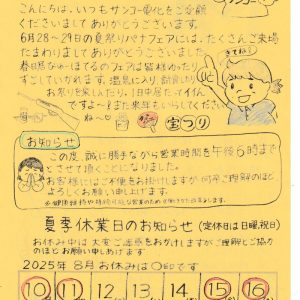 こんにちは、いつもサンコー電化をご愛顧
くださいましてありがとうございます。
6月28～29日の夏祭りパナフェアには、たくさんご来場
たまわりましてありがとうございました。
フェアは皆様ゆったり
すごしていかれます。温泉に入り、
お祭りを楽しんだり、1日中居たってイイん
ですよ～また来年もいらしてくださいね～
きてね!
宝つり
お知らせ
この度、誠に勝手ながら営業時間を午後6時まで
とさせて頂くことになりました。
お客様にはご不便をお掛けしますが、何卒ご理解のほど
よろしくお願い申し上げます。
夏季休業日のお知らせ (定休日は日曜、祝日)
お休み中は大変ご迷惑をおかけしますがご理解とご協力
のほどお願い申しあげます
2025年8月お休みは〇印です
10 11 12 13 14 15 16